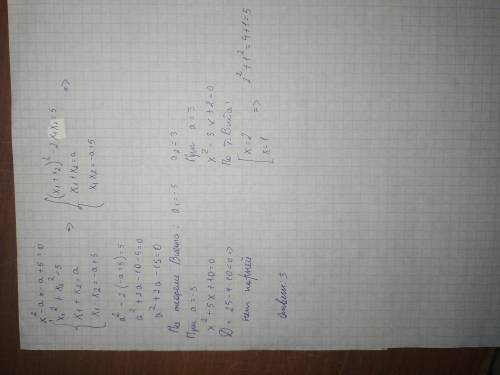 x² - ax - a + 5 = 0
{ x₁² + x₂² = 5
x₁ + x₂ = a
x₁ x₂ = -a + 5
=>
{ (x₁ + x₂)² - 2x₁x₂ = 5
x₁ + x₂ = a
x₁ x₂ = -a + 5
=>
a² - 2(-a+5) = 5
a² + 2a - 10 - 5 = 0
a² + 2a - 15 = 0
По теореме Виета: a₁ = -5 a₂ = 3
При a = -5
x² + 5x + 10 = 0
D = 25 - 4·10 < 0 =>
нет корней
При a = 3
x² - 3x + 2 = 0
По т. Виета:
[ x = 2
x = 1
=> 2² + 1² = 4 + 1 = 5
Ответ: 3